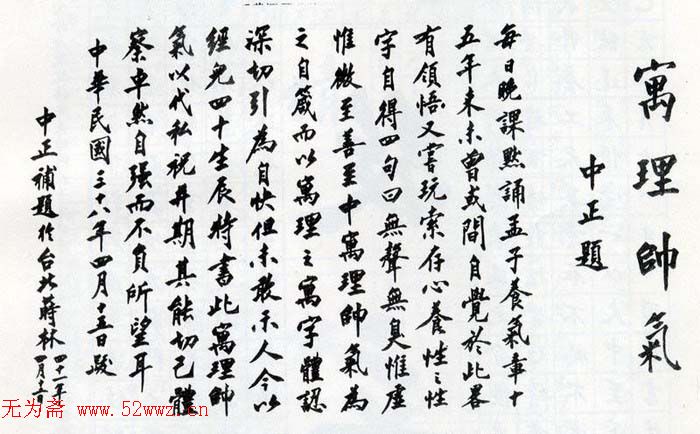 寓理帥氣
中正題
每日晚課默誦孟子養氣章十
五年來未曾或間自覺於此畧
有領悟又嘗玩索存心養性之性
字自得四句曰無聲無臭惟虛
惟微至善至中寓理帥氣為
之自箴而以寓理之寓字體認
深切引為自快但未敢示人今以
經兒四十生辰特書此寓理帥
氣以代私祝并期其能切己體
察卓然自强而不負所望耳
中華民國三十八年四月十五日跋
中正補題於台北蔣林
四十一年
四月
无为斋 www.52wwz.cn